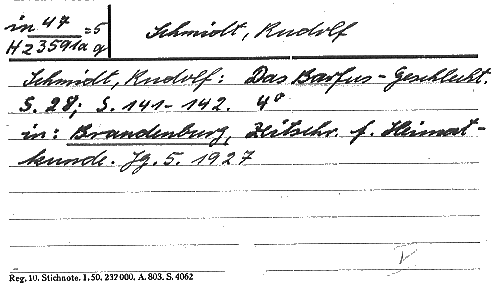 in 47 = 5
Hz 3591a q
Schmidt, Rudolf
Schmidt, Rudolf: Das Barfus-Geschlecht.
S. 28; S. 141-142. 4°
in: Brandenburg, Zeitschr. f. Heimat-
kunde. Jg. 5. 1927
V
Reg. 10. Stichnote. 1. 50. 232000. A. 803. S. 4062